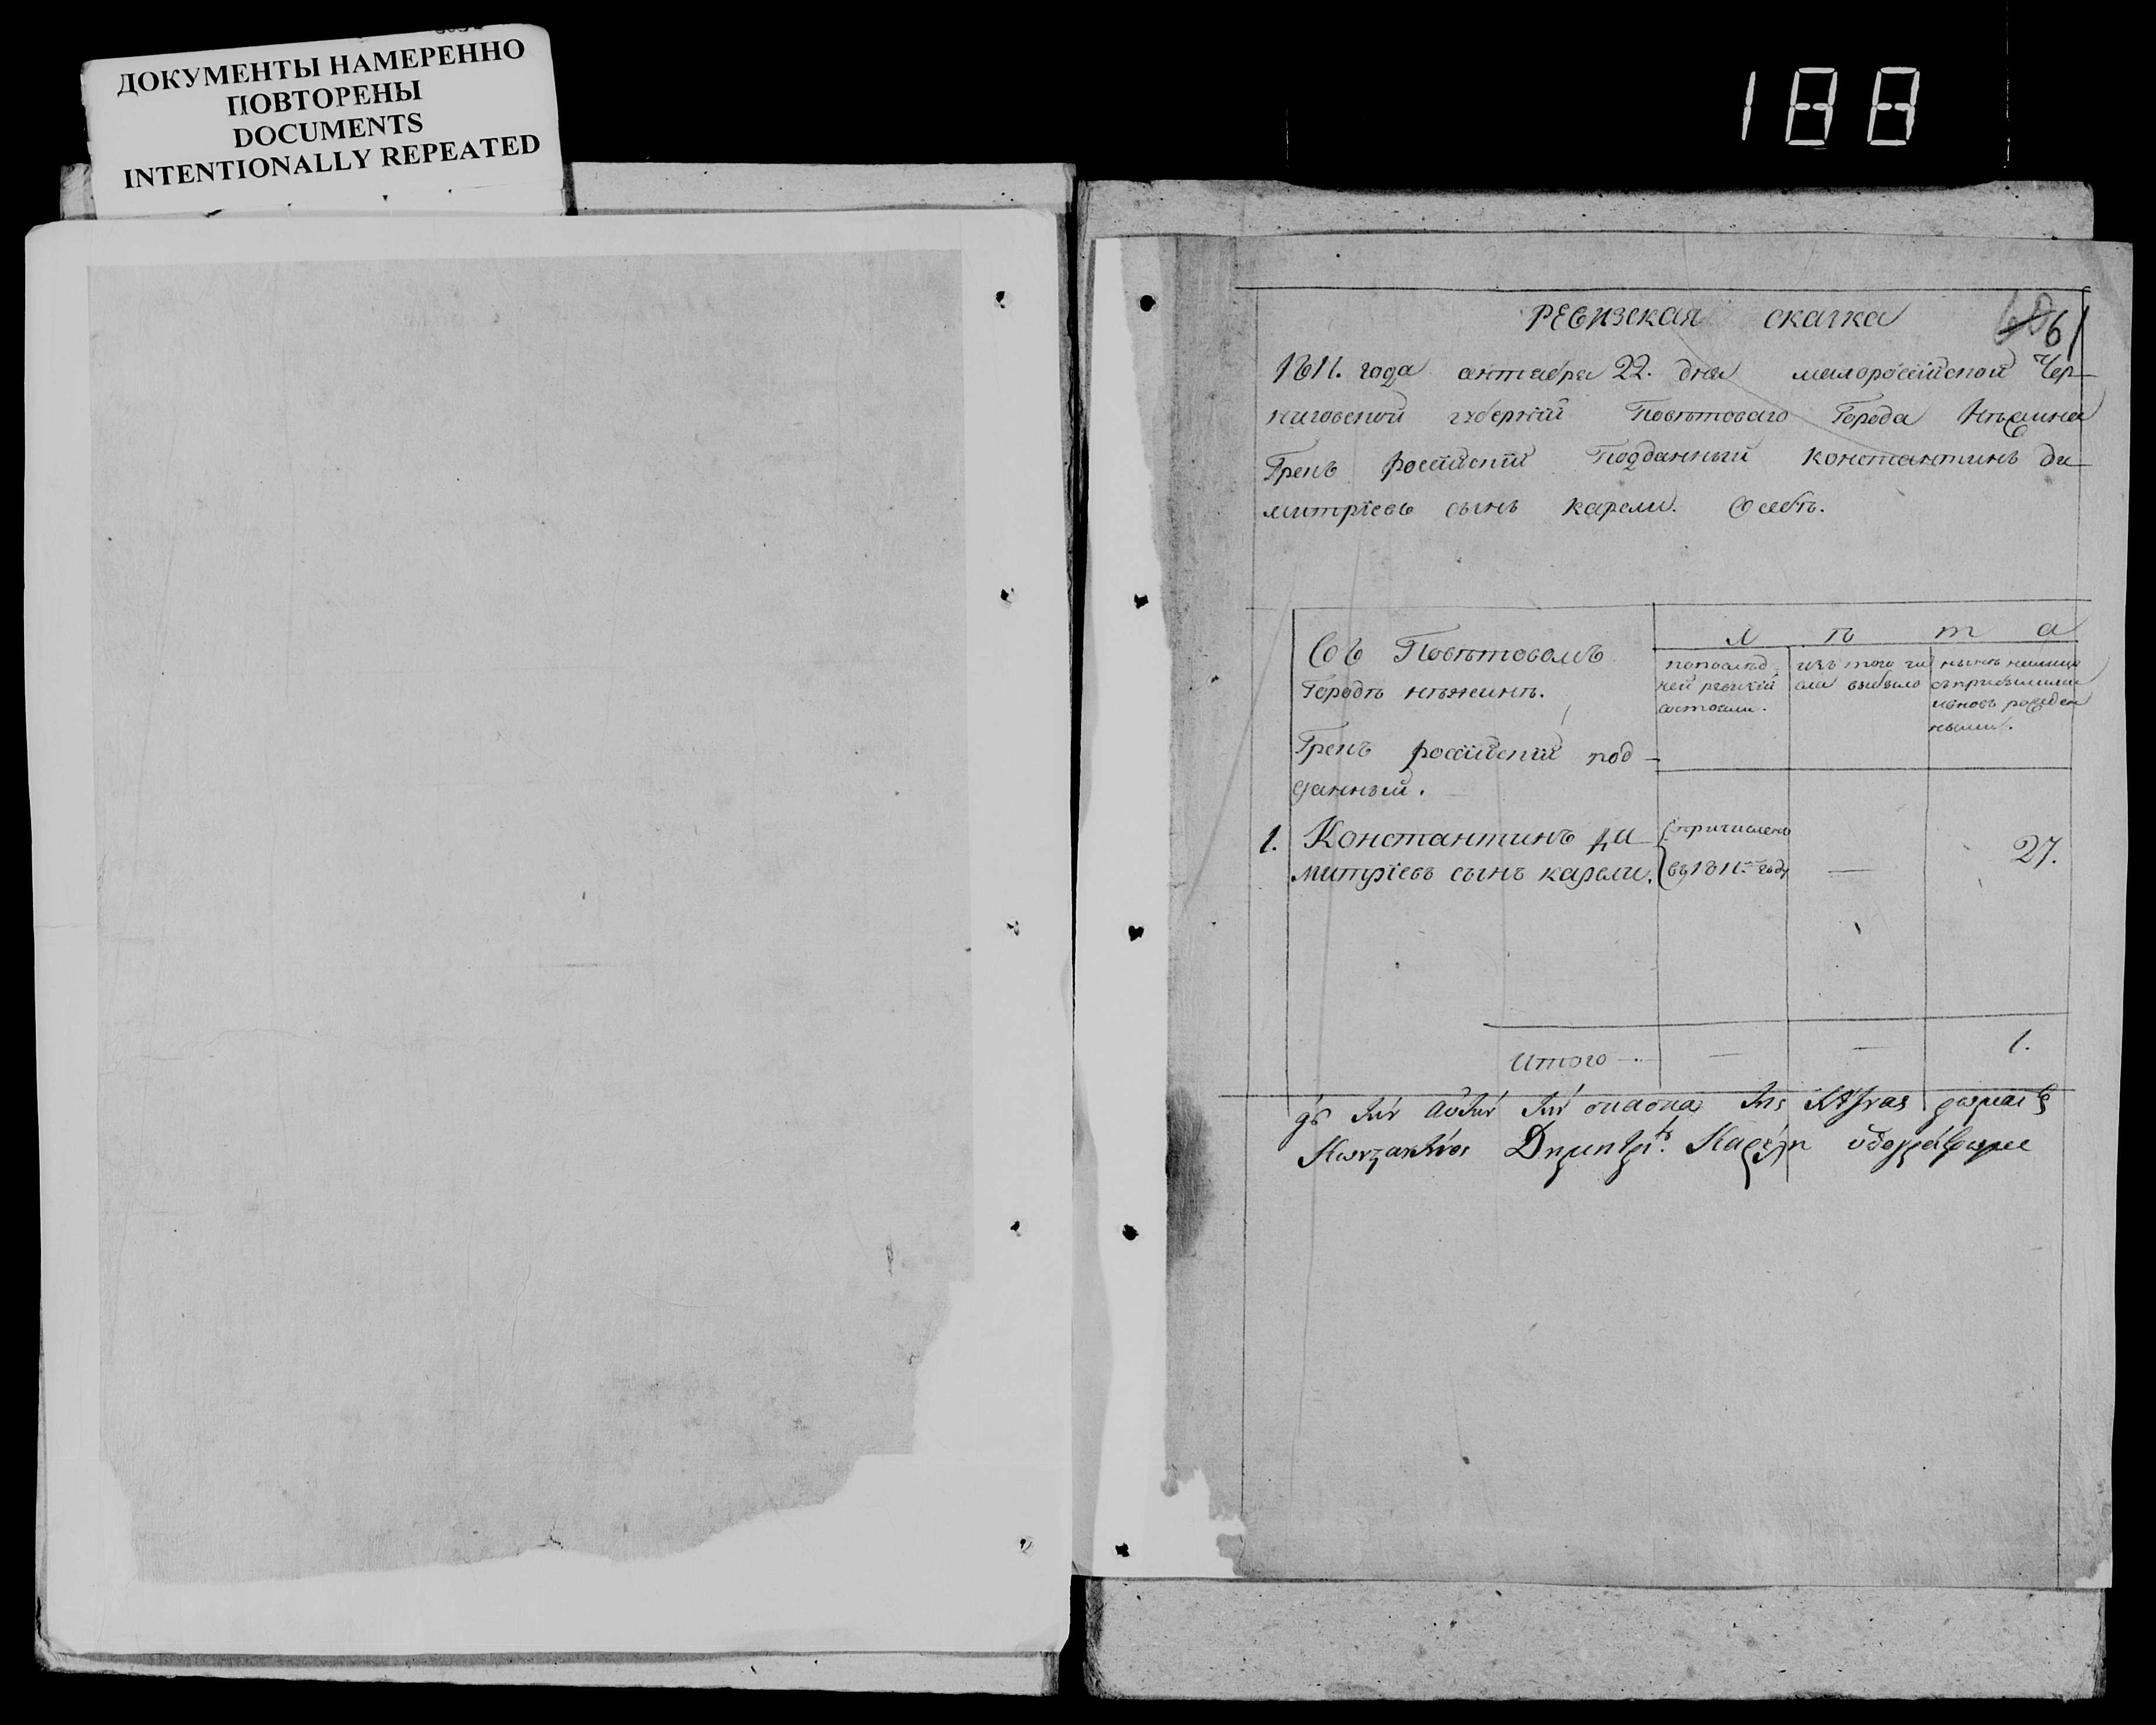 ДОКУМЕНТЫ НАМЕРЕННО
ПОВТОРЕНЫ
DOCUMENTS
INTENTIONALLY REPEATED
188
РЕВИЗСКАЯ СКАСКА
61
1811. года октября 22. дня малороссійской Чер-
ниговской губерніи Повѣтоваго Города Нѣжина
Грекъ россійскій Подданный Константинъ Ди-
митріевъ сынъ карели. О себѣ.
Въ Повѣтовомъ
Городѣ нѣжинѣ.
Грекъ россійскій под-
данный.
л ѣ т а
попослѣд-
ней ревизіи
состояли.
изъ того чи
сла выбыло
нынѣ налицо
съприбылыми
ивновь рожден
ными.
1. Константинъ Ди
митріевъ сынъ карели.
причисленъ
въ 1811-м году
—
27.
Итого — — 1.
Δημητρ. ὑπογράφομαι